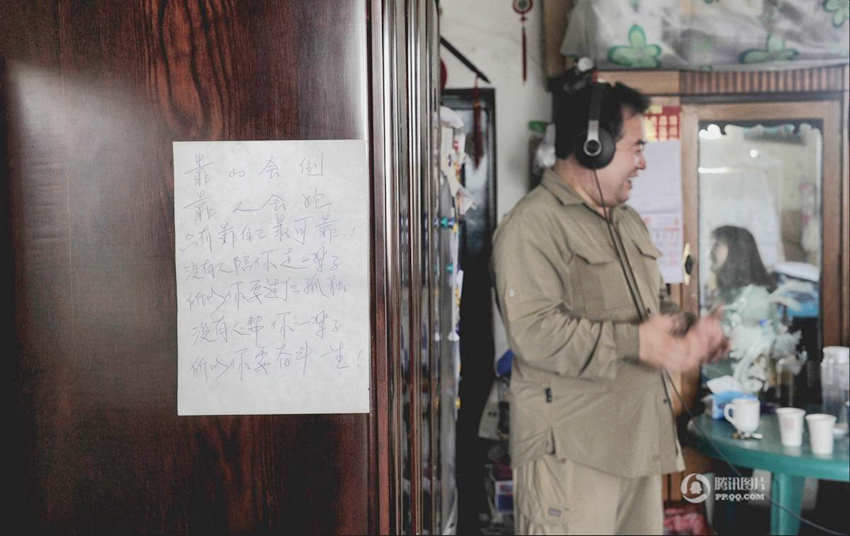 靠山会倒
靠人会跑
只有靠自己最可靠！
没有人陪你走一辈子
所以你要适应孤独
没有人帮你一辈子
所以你要奋斗一生！
腾讯图片
PP.QQ.COM